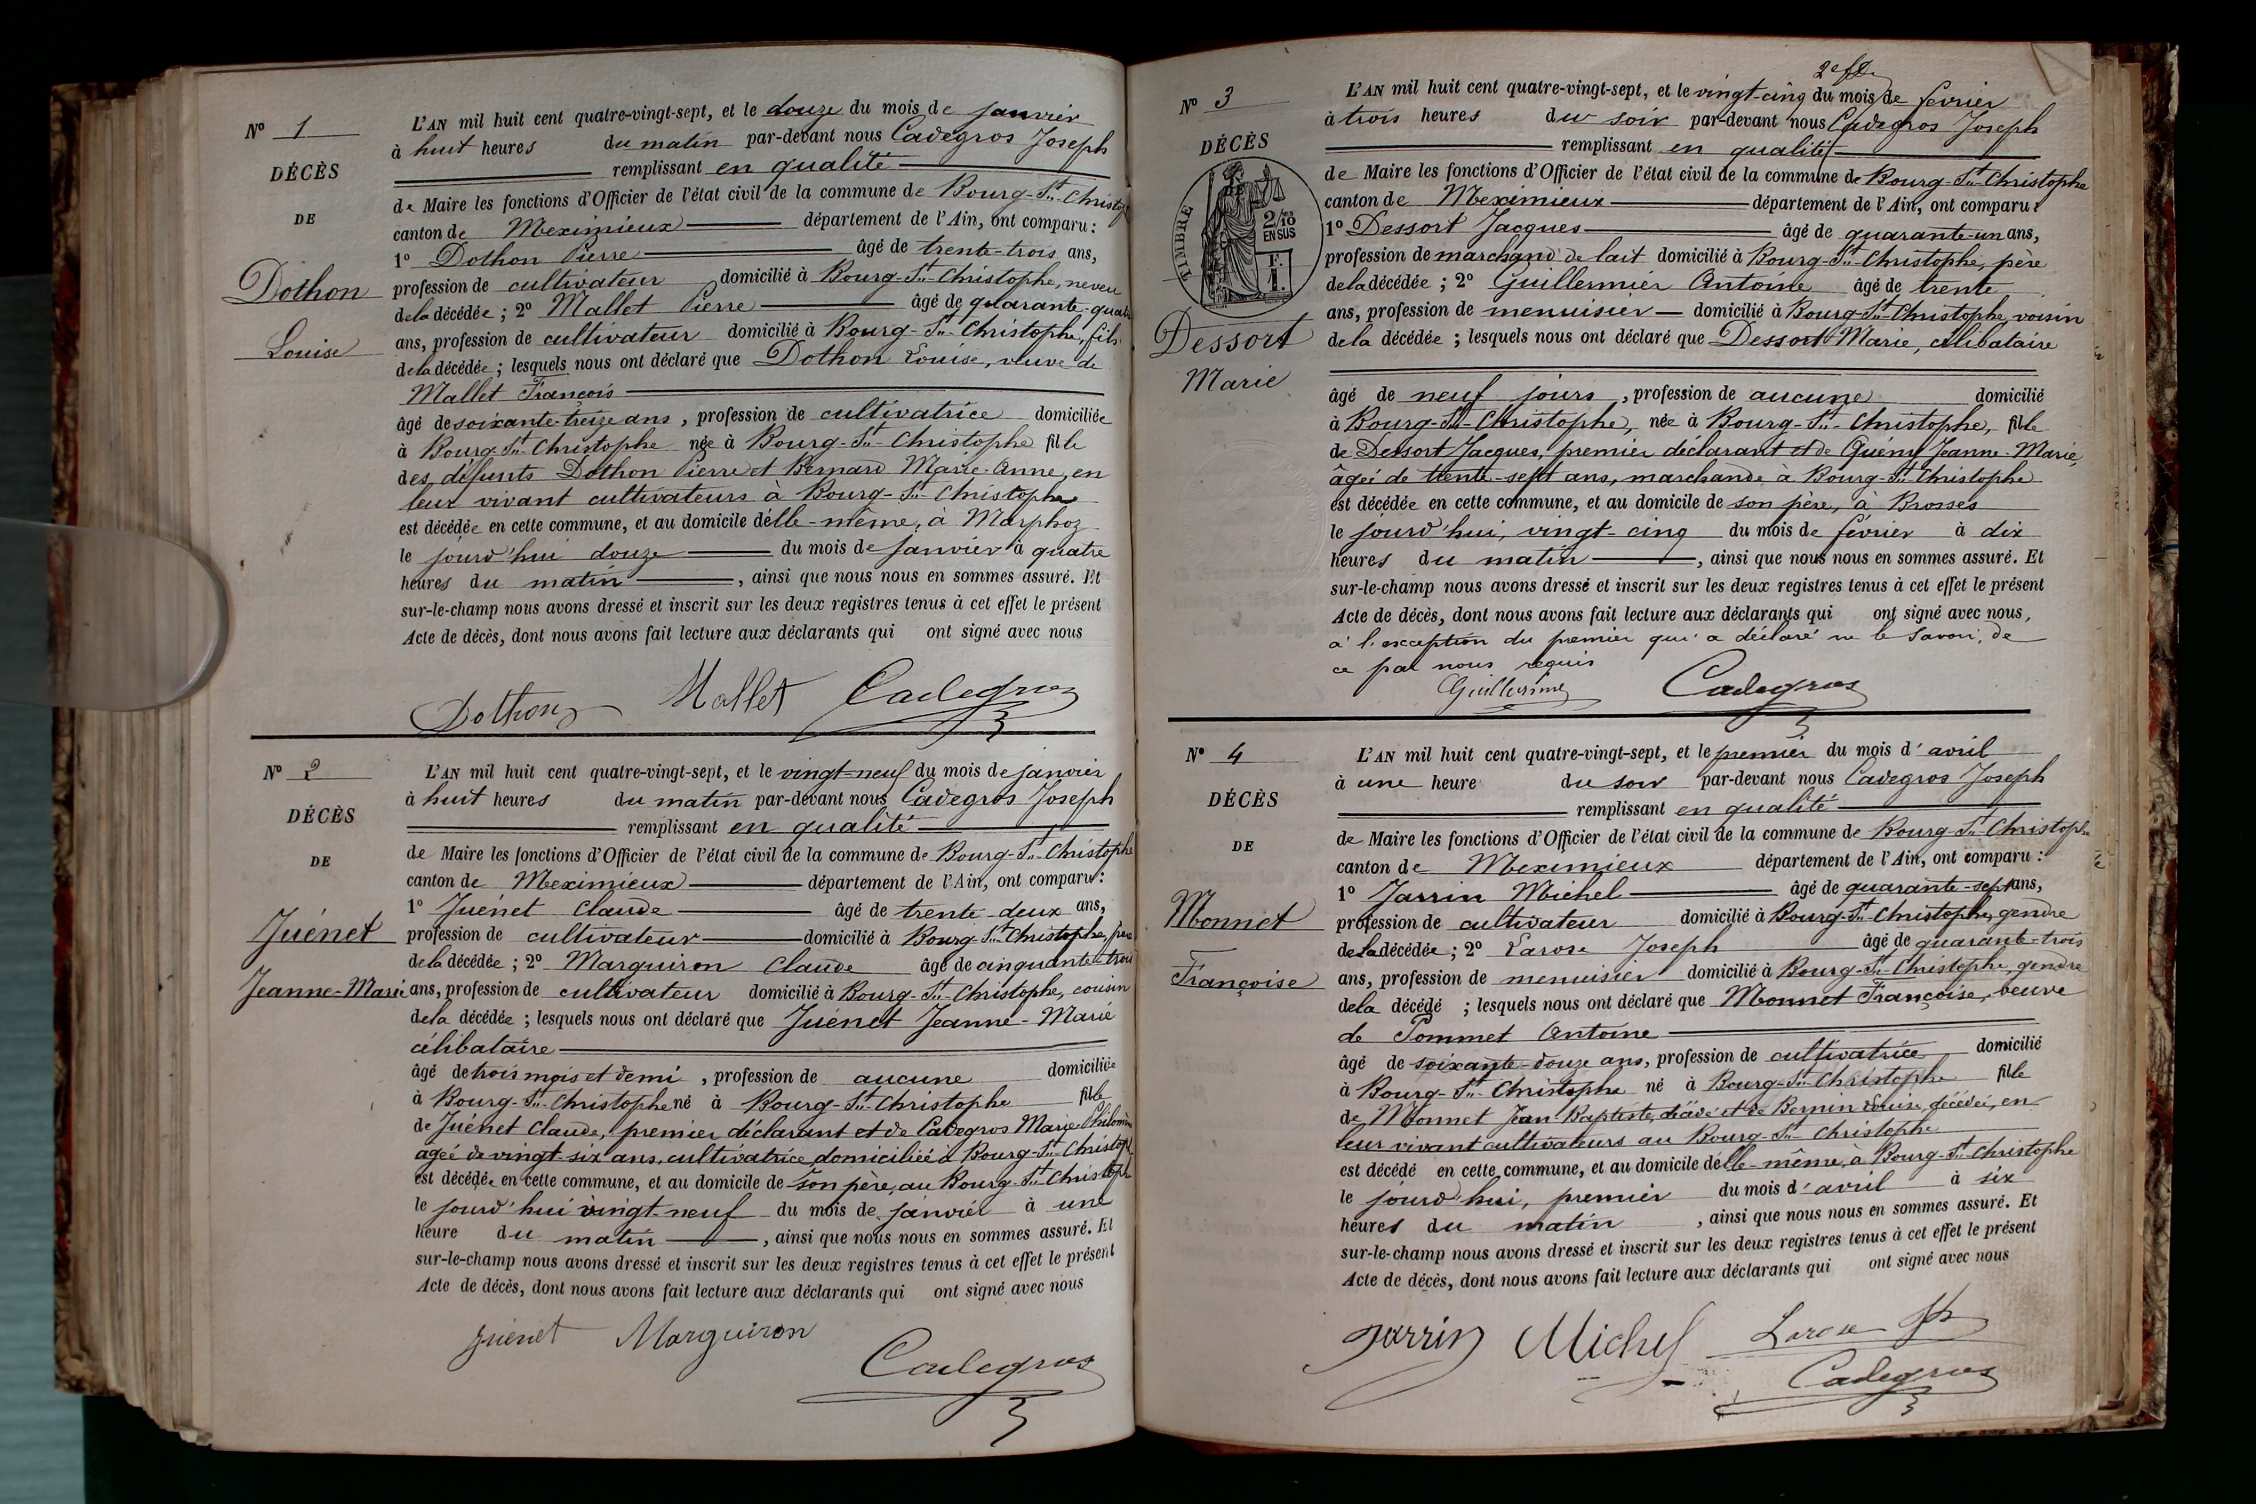 N° 1
DÉCÈS
DE
Dothon
Louise
L'AN mil huit cent quatre-vingt-sept, et le douze du mois de janvier
à huit heures du matin par-devant nous Cadegros Joseph
remplissant en qualité
de Maire les fonctions d'Officier de l'état civil de la commune de Bourg-St-Christophe
canton de Meximieux département de l'Ain, ont comparu :
1° Dothon Pierre âgé de trente-trois ans,
profession de cultivateur domicilié à Bourg-St-Christophe, neveu
de la décédée ; 2° Mallet Pierre âgé de quarante-quatre
ans, profession de cultivateur domicilié à Bourg-St-Christophe, fils
de la décédée ; lesquels nous ont déclaré que Dothon Louise, veuve de
Mallet François
âgé de soixante-treize ans, profession de cultivatrice domiciliée
à Bourg-St-Christophe née à Bourg-St-Christophe fille
des défunts Dothon Pierre et Bernard Marie-Anne, en
leur vivant cultivateurs à Bourg-St-Christophe
est décédée en cette commune, et au domicile d'elle-même, à Marphoz
le jourd'hui douze du mois de janvier à quatre
heures du matin, ainsi que nous nous en sommes assuré. Et
sur-le-champ nous avons dressé et inscrit sur les deux registres tenus à cet effet le présent
Acte de décès, dont nous avons fait lecture aux déclarants qui ont signé avec nous
Dothon Mallet Cadegros
N° 2
DÉCÈS
DE
Juénet
Jeanne-Marie
L'AN mil huit cent quatre-vingt-sept, et le vingt-neuf du mois de janvier
à huit heures du matin par-devant nous Cadegros Joseph
remplissant en qualité
de Maire les fonctions d'Officier de l'état civil de la commune de Bourg-St-Christophe
canton de Meximieux département de l'Ain, ont comparu :
1° Juénet Claude âgé de trente-deux ans,
profession de cultivateur domicilié à Bourg-St-Christophe, père
de la décédée ; 2° Marguiron Claude âgé de cinquante-trois
ans, profession de cultivateur domicilié à Bourg-St-Christophe, cousin
de la décédée ; lesquels nous ont déclaré que Juénet Jeanne-Marie
célibataire
âgé de trois mois et demi, profession de aucune domiciliée
à Bourg-St-Christophe né à Bourg-St-Christophe fille
de Juénet Claude, premier déclarant et de Cadegros Marie-Philomène
agée de vingt-six ans, cultivatrice, domiciliée à Bourg-St-Christophe
est décédée en cette commune, et au domicile de son père, au Bourg-St-Christophe
le jourd'hui vingt-neuf du mois de janvier à une
heure du matin, ainsi que nous nous en sommes assuré. Et
sur-le-champ nous avons dressé et inscrit sur les deux registres tenus à cet effet le présent
Acte de décès, dont nous avons fait lecture aux déclarants qui ont signé avec nous
Juenet Marguiron
Cadegros
N° 3
DÉCÈS
TIMBRE
2/10 EN SUS
F. 1.
Dessort
Marie
L'AN mil huit cent quatre-vingt-sept, et le vingt-cinq du mois de février
à trois heures du soir par-devant nous Cadegros Joseph
remplissant en qualité
de Maire les fonctions d'Officier de l'état civil de la commune de Bourg-St-Christophe
canton de Meximieux département de l'Ain, ont comparu :
1° Dessort Jacques âgé de quarante-un ans,
profession de marchand de lait domicilié à Bourg-St-Christophe, père
de la décédée ; 2° Guillermier Antoine âgé de trente
ans, profession de menuisier domicilié à Bourg-St-Christophe, voisin
de la décédée ; lesquels nous ont déclaré que Dessort Marie, célibataire
âgé de neuf jours, profession de aucune domicilié
à Bourg-St-Christophe, née à Bourg-St-Christophe, fille
de Dessort Jacques, premier déclarant et de Jeanne-Marie,
âgée de trente-sept ans, marchande à Bourg-St-Christophe
est décédée en cette commune, et au domicile de son père, à Brosses
le jourd'hui, vingt-cinq du mois de février à dix
heures du matin, ainsi que nous nous en sommes assuré. Et
sur-le-champ nous avons dressé et inscrit sur les deux registres tenus à cet effet le présent
Acte de décès, dont nous avons fait lecture aux déclarants qui ont signé avec nous,
à l'exception du premier qui a déclaré ne le savoir, de
ce par nous requis
Cadegros
N° 4
DÉCÈS
DE
Monnet
Françoise
L'AN mil huit cent quatre-vingt-sept, et le premier du mois d'avril
à une heure du soir par-devant nous Cadegros Joseph
remplissant en qualité
de Maire les fonctions d'Officier de l'état civil de la commune de Bourg-St-Christophe
canton de Meximieux département de l'Ain, ont comparu :
1° Jarrin Michel âgé de quarante-sept ans,
profession de cultivateur domicilié à Bourg-St-Christophe, gendre
de la décédée ; 2° Larose Joseph âgé de quarante-trois
ans, profession de menuisier domicilié à Bourg-St-Christophe, gendre
de la décédé ; lesquels nous ont déclaré que Monnet Françoise, veuve
de Pommet Antoine
âgé de soixante-douze ans, profession de cultivatrice domicilié
à Bourg-St-Christophe né à Bourg-St-Christophe fille
de Monnet Jean-Baptiste, et de Bernin Louise, décédée, en
leur vivant cultivateurs au Bourg-St-Christophe
est décédé en cette commune, et au domicile d'elle-même, à Bourg-St-Christophe
le jourd'hui, premier du mois d'avril à six
heures du matin, ainsi que nous nous en sommes assuré. Et
sur-le-champ nous avons dressé et inscrit sur les deux registres tenus à cet effet le présent
Acte de décès, dont nous avons fait lecture aux déclarants qui ont signé avec nous
Jarrin Michel Larose
Cadegros